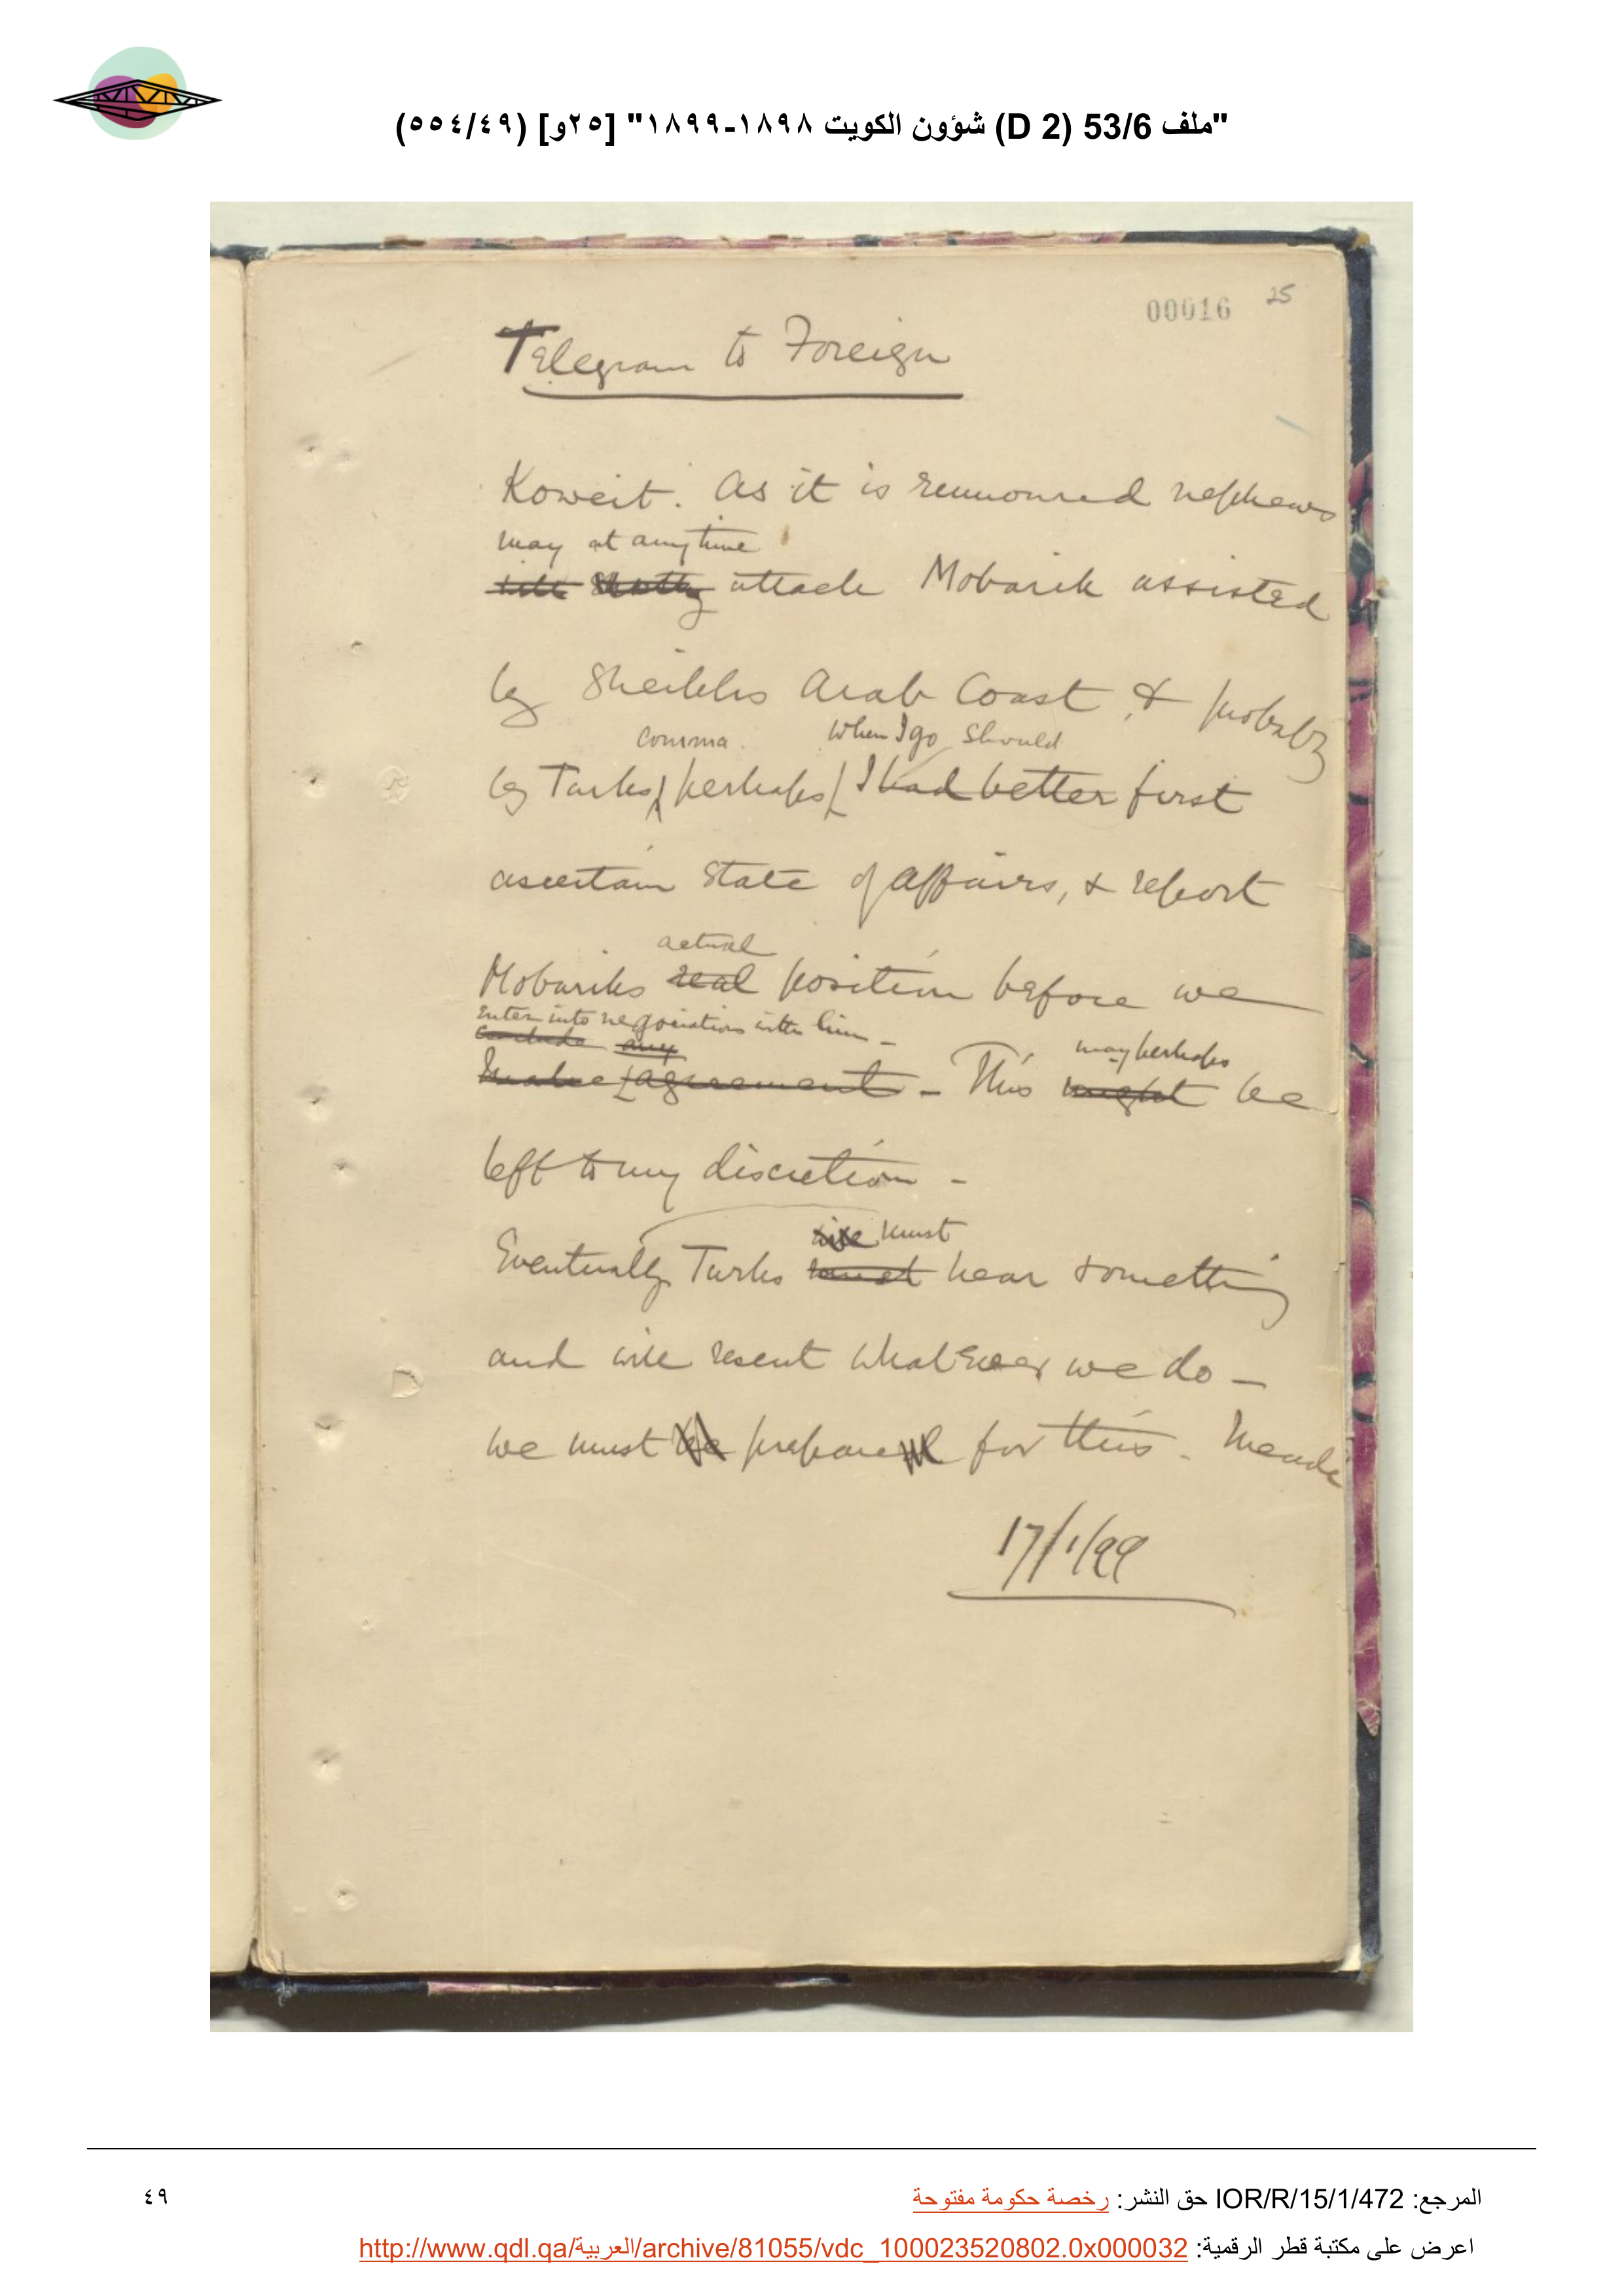 "ملف 53/6 (D 2) شؤون الكويت ١٨٩٨-١٨٩٩" [٢٥و] (٥٥٤/٤٩)
00016 25
Telegram to Foreign
Koweit. As it is rumoured nephews
may at any time
will shortly attack Mobarik assisted
by Sheikhs Arab Coast & probably
comma. When I go should
by Turks perhaps I had better first
ascertain state of affairs, & report
actual
Mobariks real position before we
enter into negociations with him -
conclude any may perhaps
make agreement - This might be
left to my discretion -
will must
Eventually Turks must hear something
and will resent whatever we do -
we must be prepared for this. Meade
17/1/99
المرجع: IOR/R/15/1/472 حق النشر: رخصة حكومة مفتوحة
٤٩
اعرض على مكتبة قطر الرقمية: http://www.qdl.qa/العربية/archive/81055/vdc_100023520802.0x000032